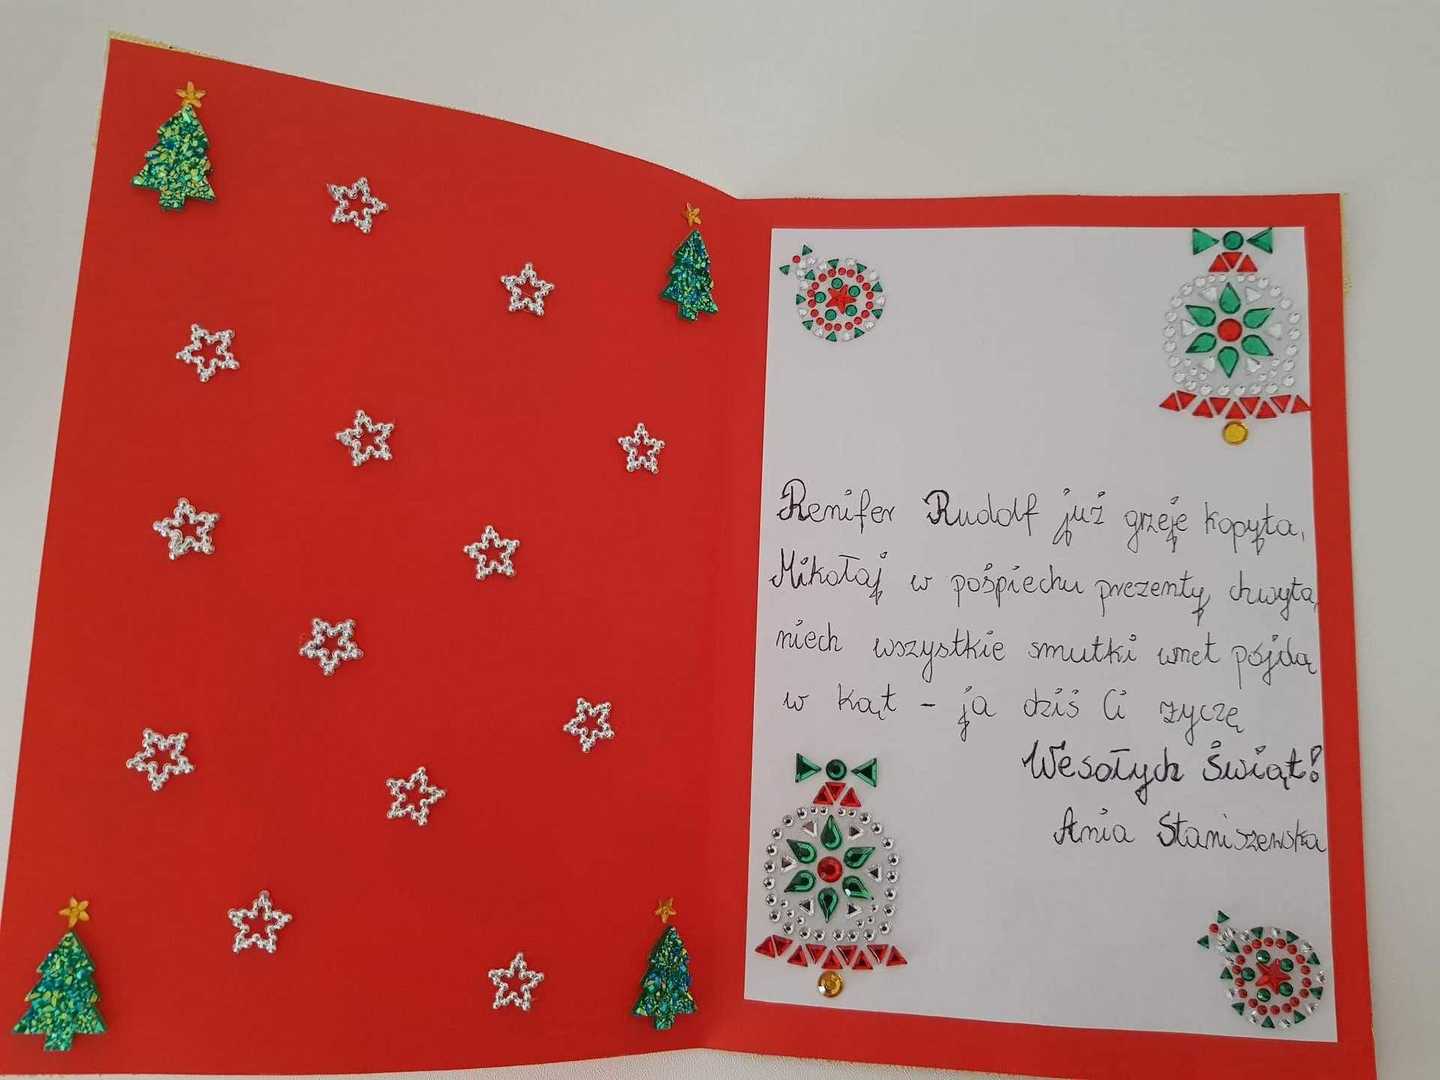 Renifer Rudolf już grzeje kopyta,
Mikołaj w pośpiechu prezenty chwyta,
niech wszystkie smutki wnet pójdą
w kąt - ja dziś Ci życzę
Wesołych Świąt!
Ania Staniszewska